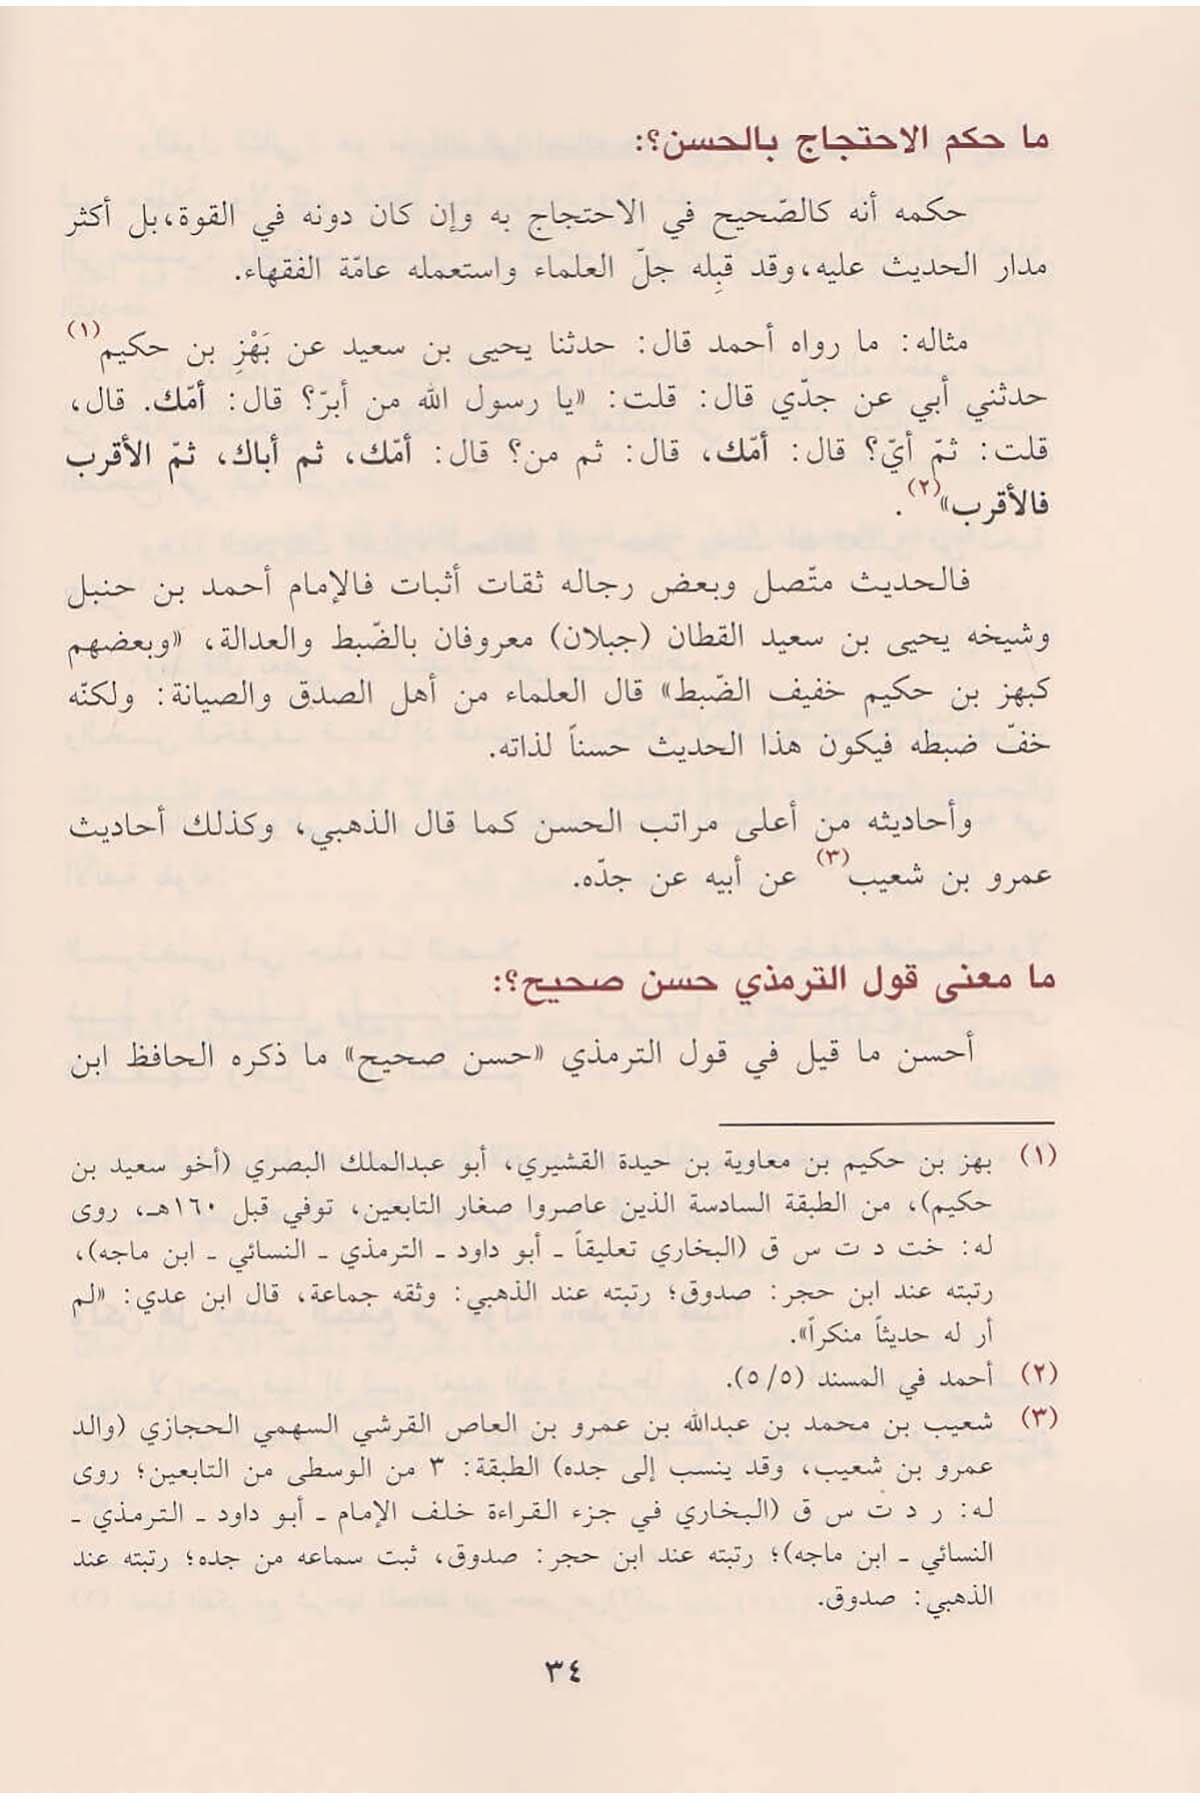 ما حكم الاحتجاج بالحسن؟:
حكمه أنه كالصّحيح في الاحتجاج به وإن كان دونه في القوة،بل أكثر
مدار الحديث عليه،وقد قبِله جلّ العلماء واستعمله عامّة الفقهاء.
مثاله: ما رواه أحمد قال: حدثنا يحيى بن سعيد عن بَهْزِ بن حكيم(١)
حدثني أبي عن جدّي قال: قلت: «يا رسول الله من أبرّ؟ قال: أمّك. قال،
قلت: ثمّ أيّ؟ قال: أمّك، قال: ثم من؟ قال: أمّك، ثم أباك، ثمّ الأقرب
فالأقرب»(٢).
فالحديث متّصل وبعض رجاله ثقات أثبات فالإمام أحمد بن حنبل
وشيخه يحيى بن سعيد القطان (جبلان) معروفان بالضّبط والعدالة، «وبعضهم
كبهز بن حكيم خفيف الضّبط» قال العلماء من أهل الصدق والصيانة: ولكنّه
خفّ ضبطه فيكون هذا الحديث حسناً لذاته.
وأحاديثه من أعلى مراتب الحسن كما قال الذهبي، وكذلك أحاديث
عمرو بن شعيب(٣) عن أبيه عن جدّه.
ما معنى قول الترمذي حسن صحيح؟:
أحسن ما قيل في قول الترمذي «حسن صحيح» ما ذكره الحافظ ابن
(١) بهز بن حكيم بن معاوية بن حيدة القشيري، أبو عبدالملك البصري (أخو سعيد بن
حكيم)، من الطبقة السادسة الذين عاصروا صغار التابعين، توفي قبل ١٦٠هـ، روى
له: خت د ت س ق (البخاري تعليقاً ـ أبو داود ـ الترمذي ـ النسائي ـ ابن ماجه)،
رتبته عند ابن حجر: صدوق؛ رتبته عند الذهبي: وثقه جماعة، قال ابن عدي: «لم
أر له حديثاً منكراً».
(٢) أحمد في المسند (٥/٥).
(٣) شعيب بن محمد بن عبدالله بن عمرو بن العاص القرشي السهمي الحجازي (والد
عمرو بن شعيب، وقد ينسب إلى جده) الطبقة: ٣ من الوسطى من التابعين؛ روى
له: ر د ت س ق (البخاري في جزء القراءة خلف الإمام ـ أبو داود ـ الترمذي ـ
النسائي ـ ابن ماجه)؛ رتبته عند ابن حجر: صدوق، ثبت سماعه من جده؛ رتبته عند
الذهبي: صدوق.
٣٤